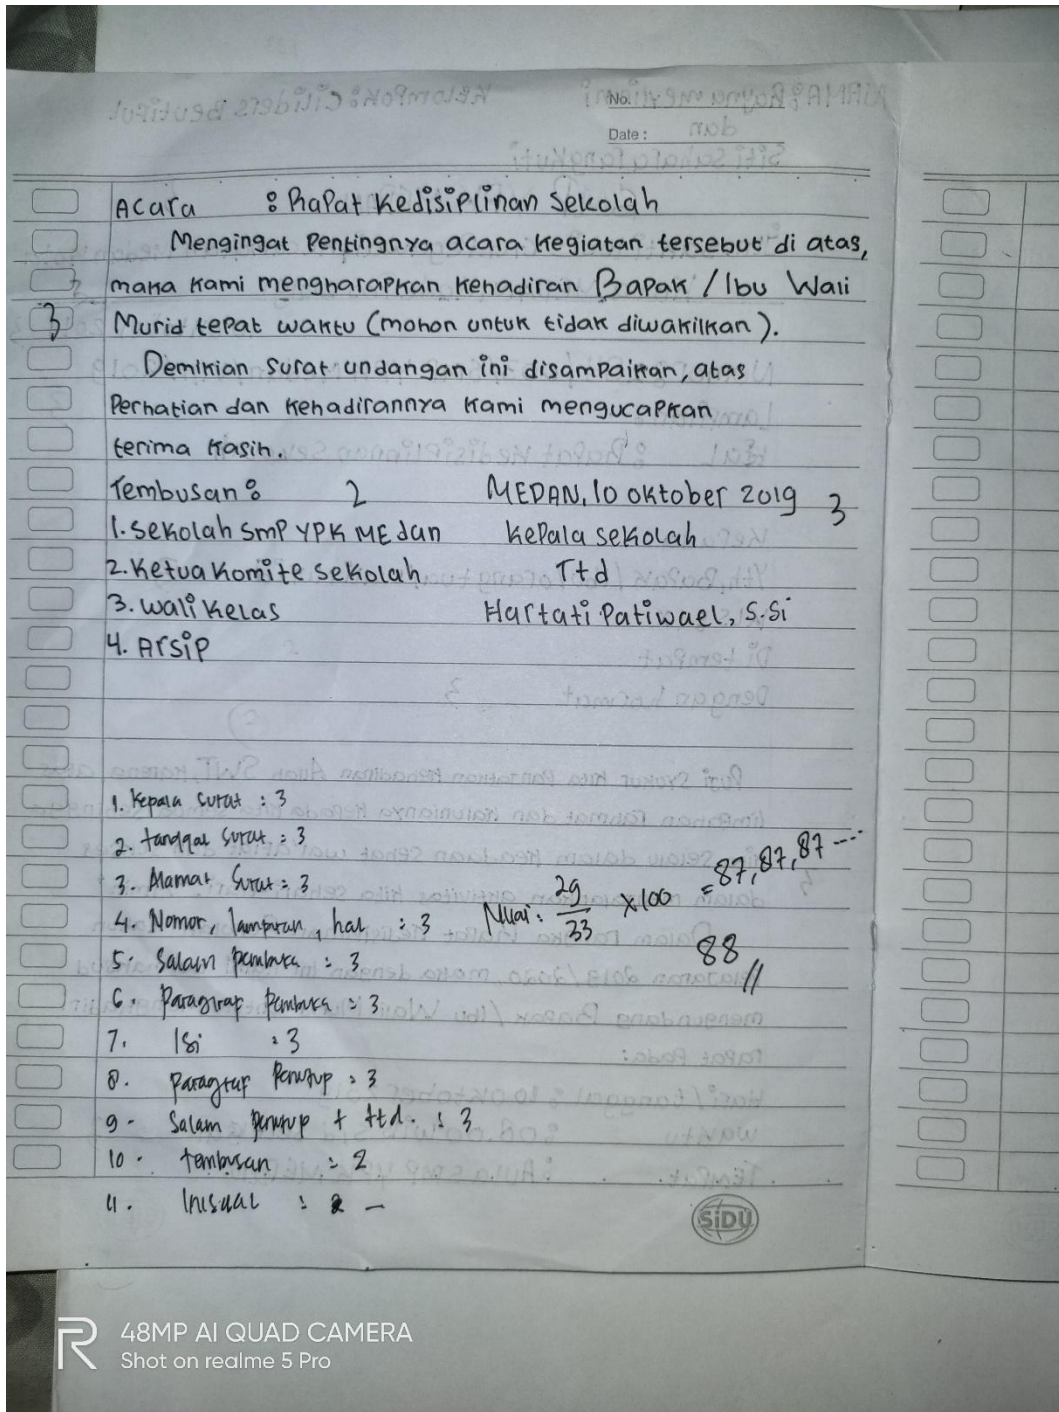 No.
Date :
Acara : Rapat Kedisiplinan Sekolah
Mengingat Pentingnya acara kegiatan tersebut di atas,
maka kami mengharapkan kehadiran Bapak / Ibu Wali
3 Murid tepat waktu (mohon untuk tidak diwakilkan).
Demikian surat undangan ini disampaikan, atas
Perhatian dan kehadirannya kami mengucapkan
terima kasih.
Tembusan : 2 MEDAN, 10 oktober 2019 3
1. Sekolah SMP YPK MEdan Kepala sekolah
2. Ketua Komite sekolah Ttd
3. wali kelas Hartati Patiwael, S.Si
4. Arsip
1. Kepala surat : 3
2. tanggal surat : 3
3. Alamat surat : 3
4. Nomor, lampiran, hal : 3
5. Salam pembuka : 3
6. Paragraf Pembuka : 3
7. Isi : 3
8. Paragraf Penutup : 3
9. Salam penutup + ttd. : 3
10. tembusan : 2
11. Inisial : -
Nilai : 29/33 x 100 = 87,87,87 ...
88 //
SiDU
48MP AI QUAD CAMERA
Shot on realme 5 Pro